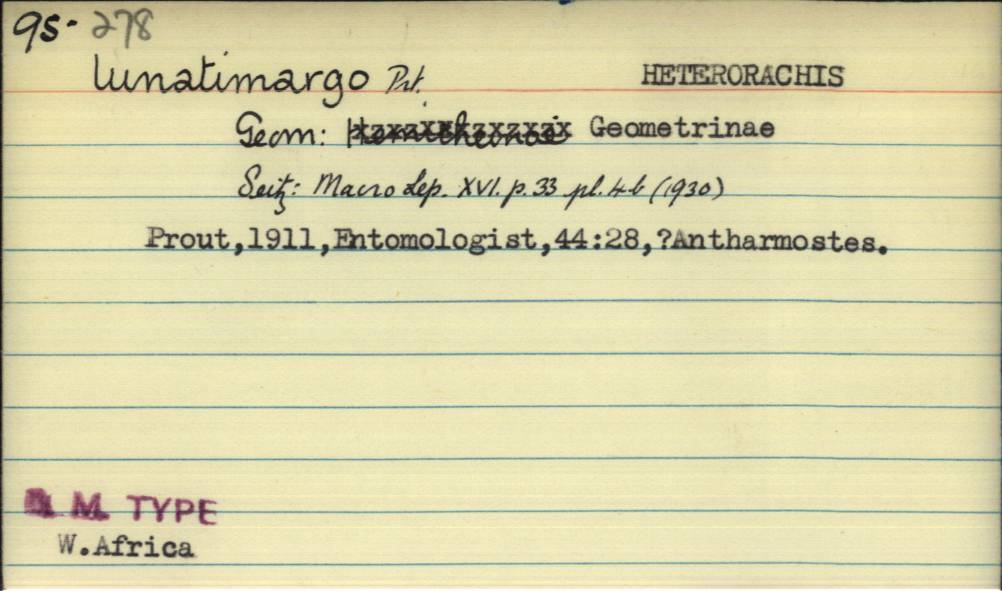 95- 278
lunatimargo Prt. HETERORACHIS
Geom: Hemitheinae Geometrinae
Seitz: Macro Lep. XVI. p. 33 pl. 4b (1930)
Prout,1911,Entomologist,44:28,?Antharmostes.
B. M. TYPE
W.Africa